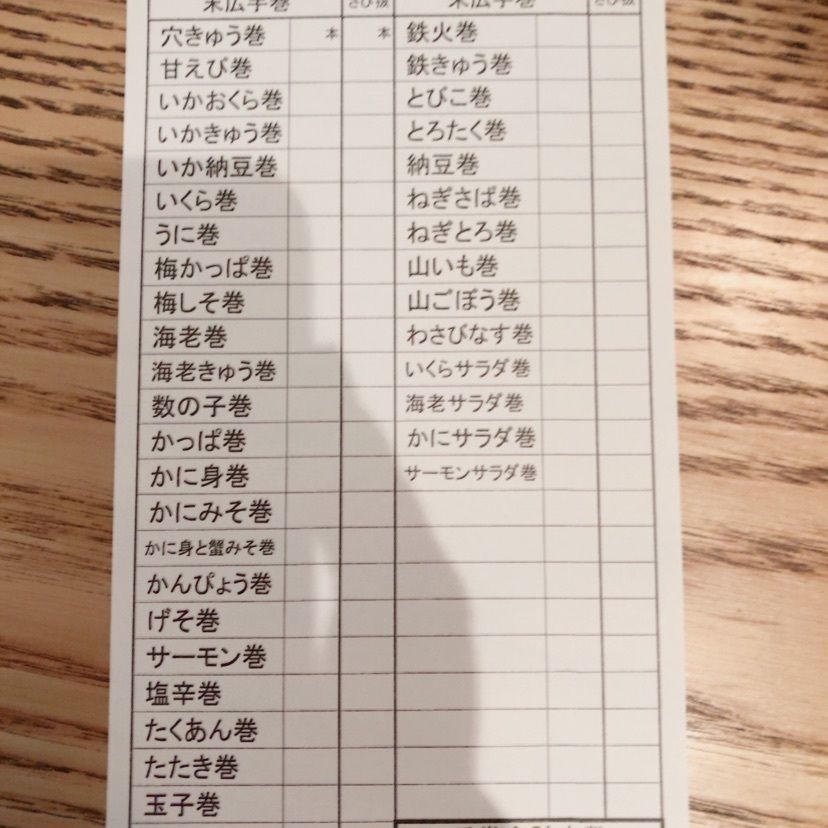 末広手巻 さび抜 末広手巻 さび抜
穴きゅう巻 本 本
甘えび巻
いかおくら巻
いかきゅう巻
いか納豆巻
いくら巻
うに巻
梅かっぱ巻
梅しそ巻
海老巻
海老きゅう巻
数の子巻
かっぱ巻
かに身巻
かにみそ巻
かに身と蟹みそ巻
かんぴょう巻
げそ巻
サーモン巻
塩辛巻
たくあん巻
たたき巻
玉子巻
鉄火巻
鉄きゅう巻
とびこ巻
とろたく巻
納豆巻
ねぎさば巻
ねぎとろ巻
山いも巻
山ごぼう巻
わさびなす巻
いくらサラダ巻
海老サラダ巻
かにサラダ巻
サーモンサラダ巻